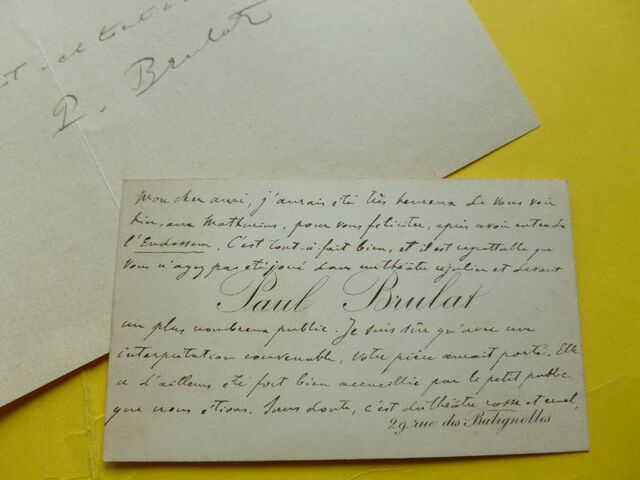 et tout
P. Brulat
Mon cher ami, j'aurais été très heureux de vous voir
hier, aux Mathurins, pour vous féliciter, après avoir entendu
l'Endosseur. C'est tout-à-fait bien, et il est regrettable que
vous n'ayez pas été joué dans un théâtre régulier et devant
Paul Brulat
un plus nombreux public. Je suis sûr qu'avec une
interprétation convenable, votre pièce aurait porté. Elle
a d'ailleurs été fort bien accueillie par le petit public
que nous étions. Sans doute, c'est du théâtre rosse et cruel,
29, rue des Batignolles